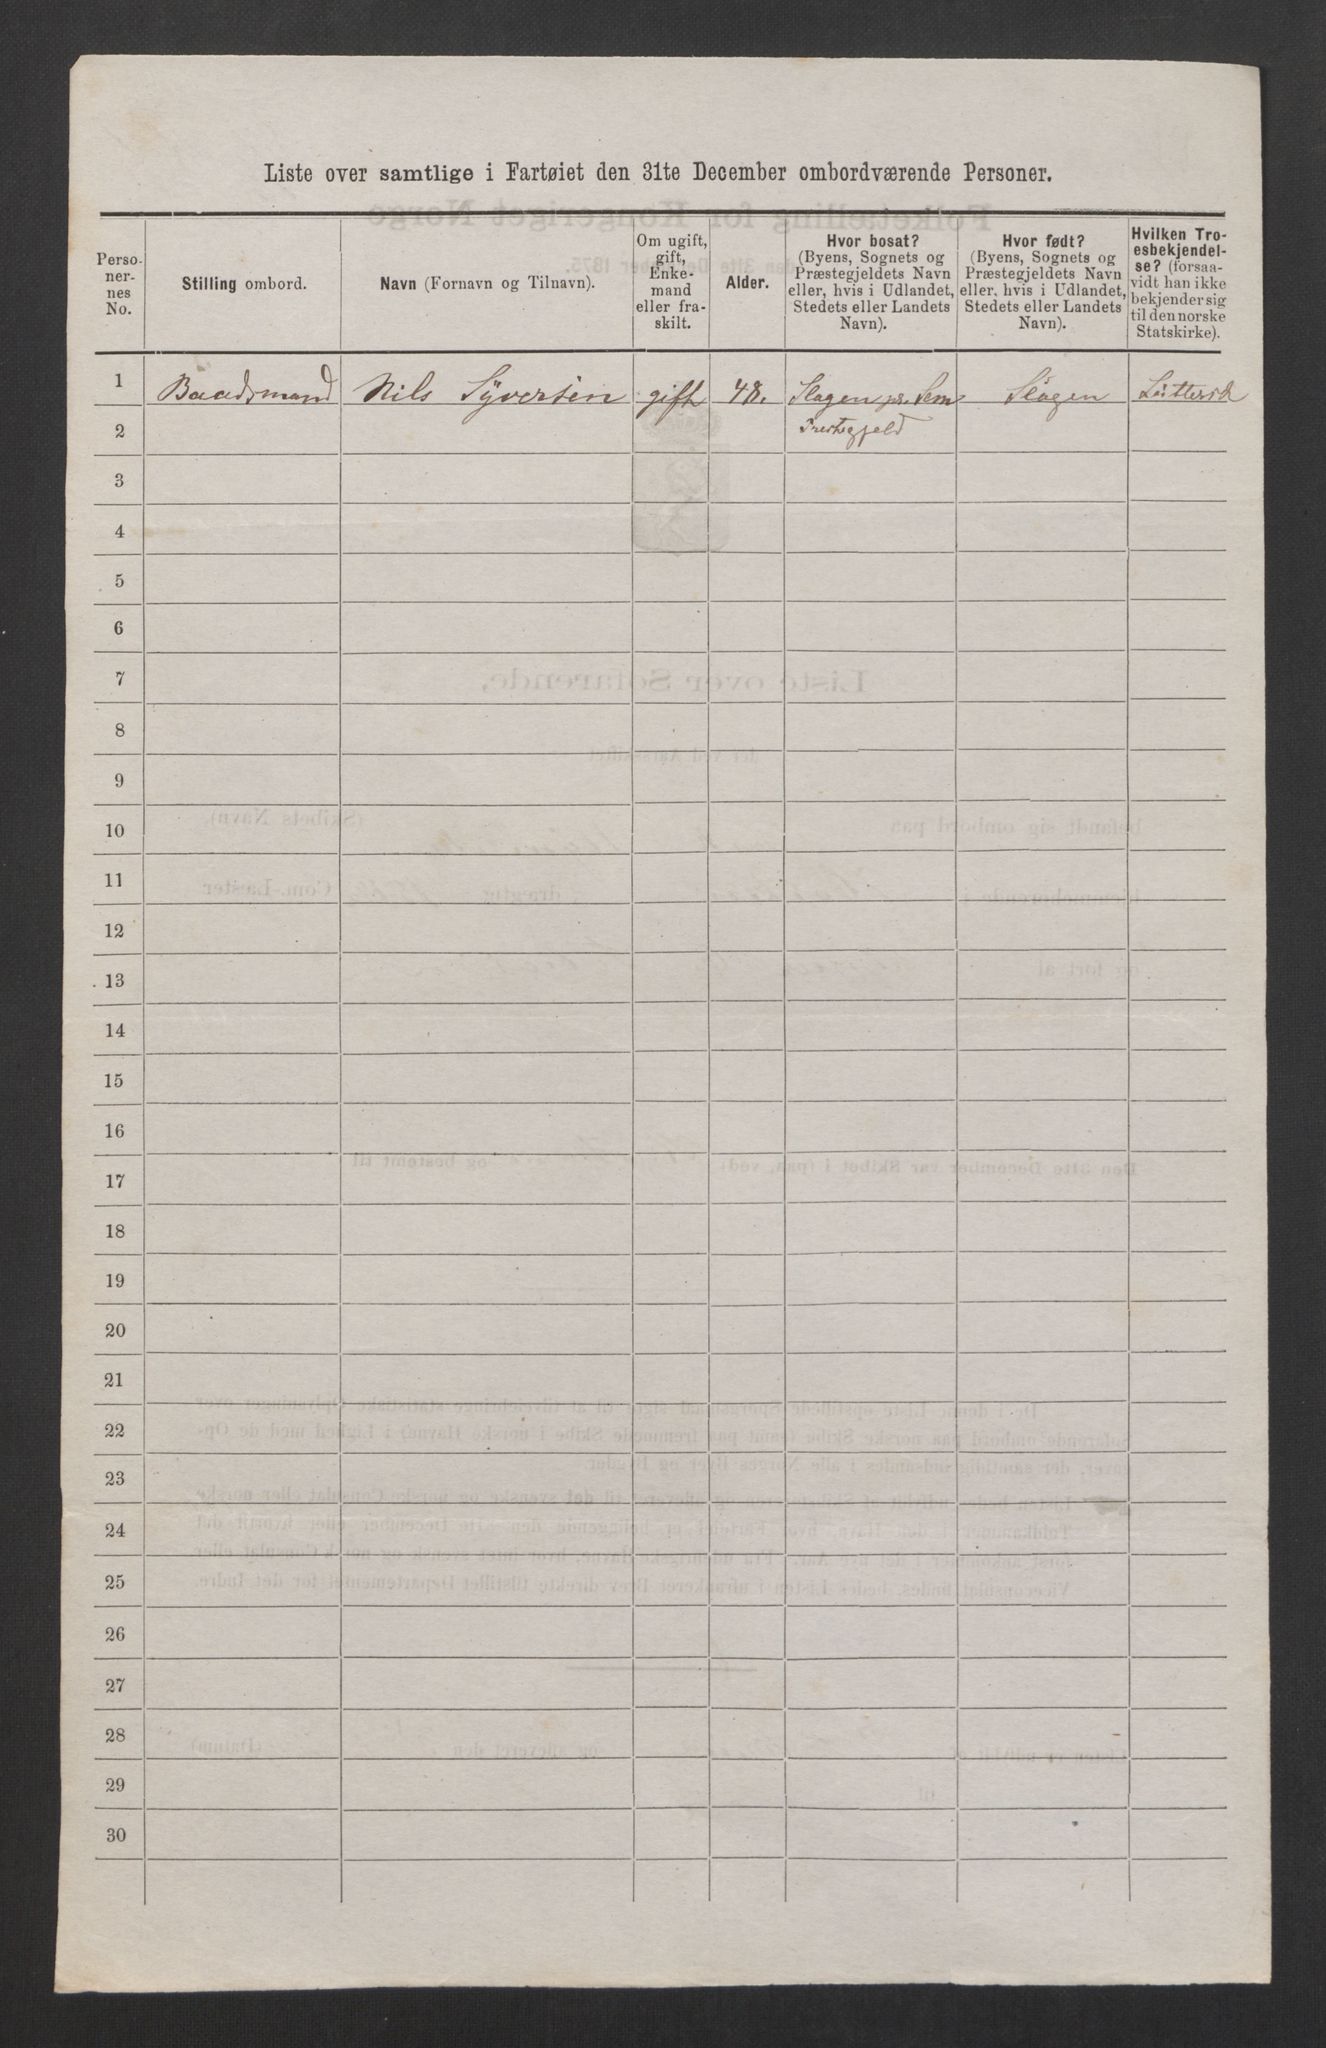 Liste over samtlige i Fartøiet den 31te December ombordværende Personer.
Perso-
ner-
nes
No.
Stilling ombord.
Navn (Fornavn og Tilnavn).
Om ugift,
gift,
Enke-
mand
eller fra-
skilt.
Alder.
Hvor bosat?
(Byens, Sognets og
Præstegjeldets Navn
eller, hvis i Udlandet,
Stedets eller Landets
Navn).
Hvor født?
(Byens, Sognets og
Præstegjeldets Navn
eller, hvis i Udlandet,
Stedets eller Landets
Navn).
Hvilken Tro-
esbekjendel-
se? (forsaa-
vidt han ikke
bekjender sig
til den norske
Statskirke).
1 Baadsmand Nils Syversen gift 48. Slagen pr. Sem Slagen
2 Prestegjeld
3
4
5
6
7
8
9
10
11
12
13
14
15
16
17
18
19
20
21
22
23
24
25
26
27
28
29
30